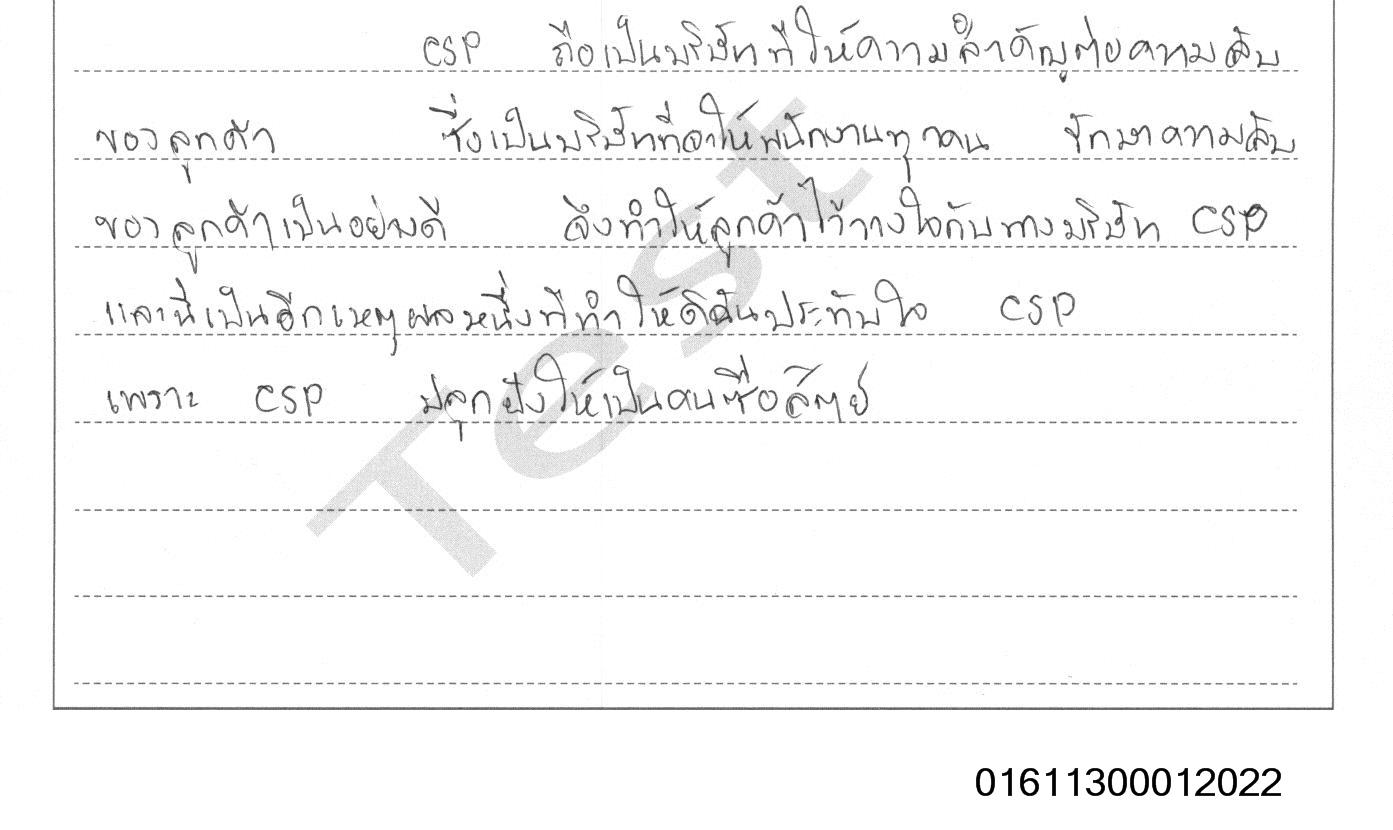 CSP ถือเป็นบริษัทที่ให้ความสำคัญต่อความลับ
ของลูกค้า ซึ่งเป็นบริษัทที่จะให้พนักงานทุกคน รักษาความลับ
ของลูกค้าเป็นอย่างดี จึงทำให้ลูกค้าไว้วางใจกับทางบริษัท CSP
และนี่เป็นอีกเหตุผลหนึ่งที่ทำให้ดิฉันประทับใจ CSP
เพราะ CSP ปลูกฝังให้เป็นคนซื่อสัตย์
Test
01611300012022